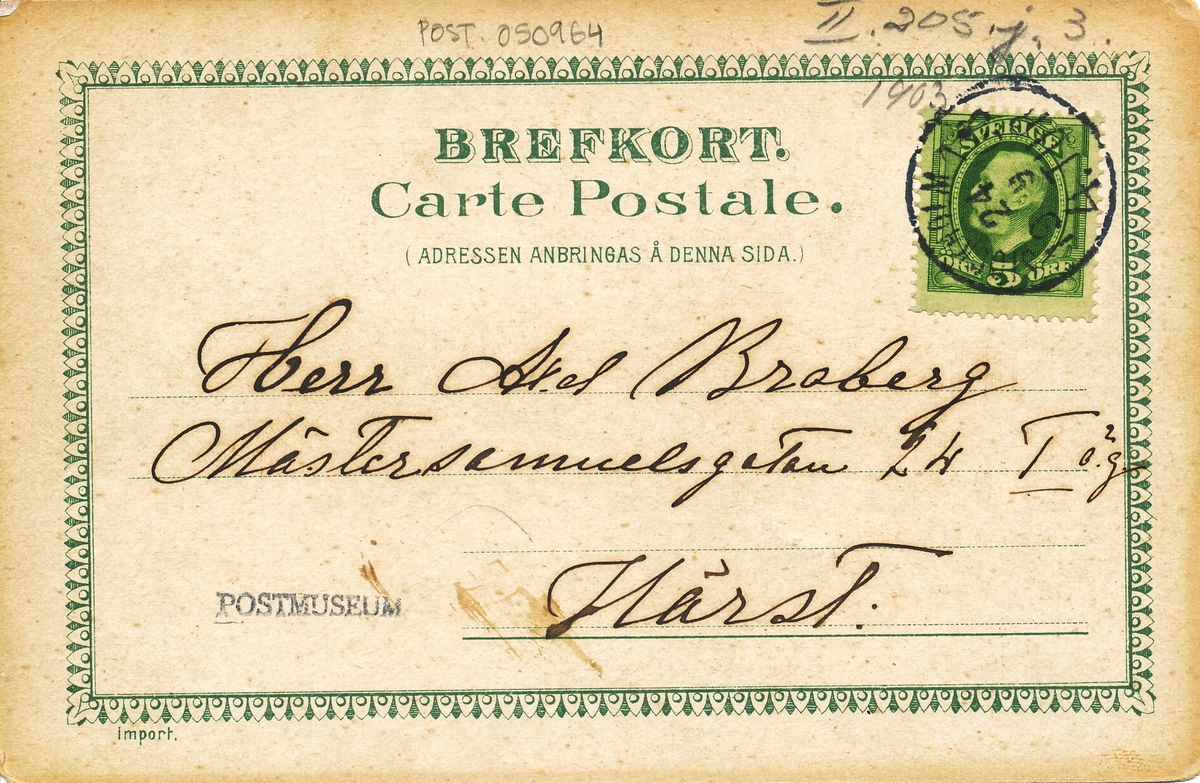 POST. 050964
II. 205. j. 3.
1903
BREFKORT.
Carte Postale.
(ADRESSEN ANBRINGAS Å DENNA SIDA.)
SVERIGE
24
5
ÖRE
Herr Axel Broberg
Mästersamuelsgatan 24 I ög
Härst.
POSTMUSEUM
import.